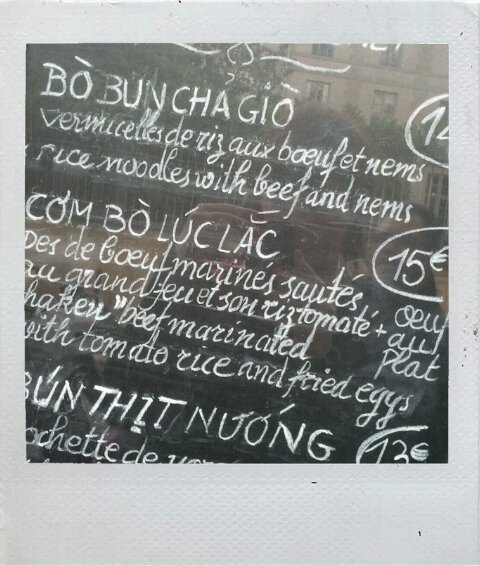 BÒ BUN CHẢ GIÒ
14
vermicelles de riz aux bœuf et nems
rice noodles with beef and nems
CƠM BÒ LÚC LẮC
15€
Des de bœuf marines sautés,
au grand feu et son riz tomaté + oeuf
haken "beef marinated au
with tomato, rice and fried eggs Plat
BÚN THỊT NƯỚNG
13€
ochette de